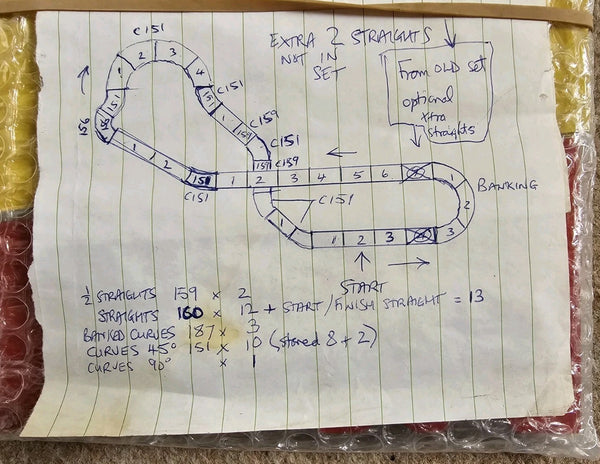 C151
EXTRA 2 STRAIGHTS
NOT IN
SET
From OLD set
optional
xtra
straights
1 2 3 4
5
156
151
C151
1
159
C159
C151
159
C159
1 2 151
C151
1 2 3 4 5 6
BANKING
1
2
3
C151
1
1 2 3
START
½ STRAIGHTS 159 x 2
STRAIGHTS 160 x 12 + START/FINISH STRAIGHT = 13
BANKED CURVES 187 x 3
CURVES 45° 151 x 10 (stored 8 + 2)
CURVES 90° x 1